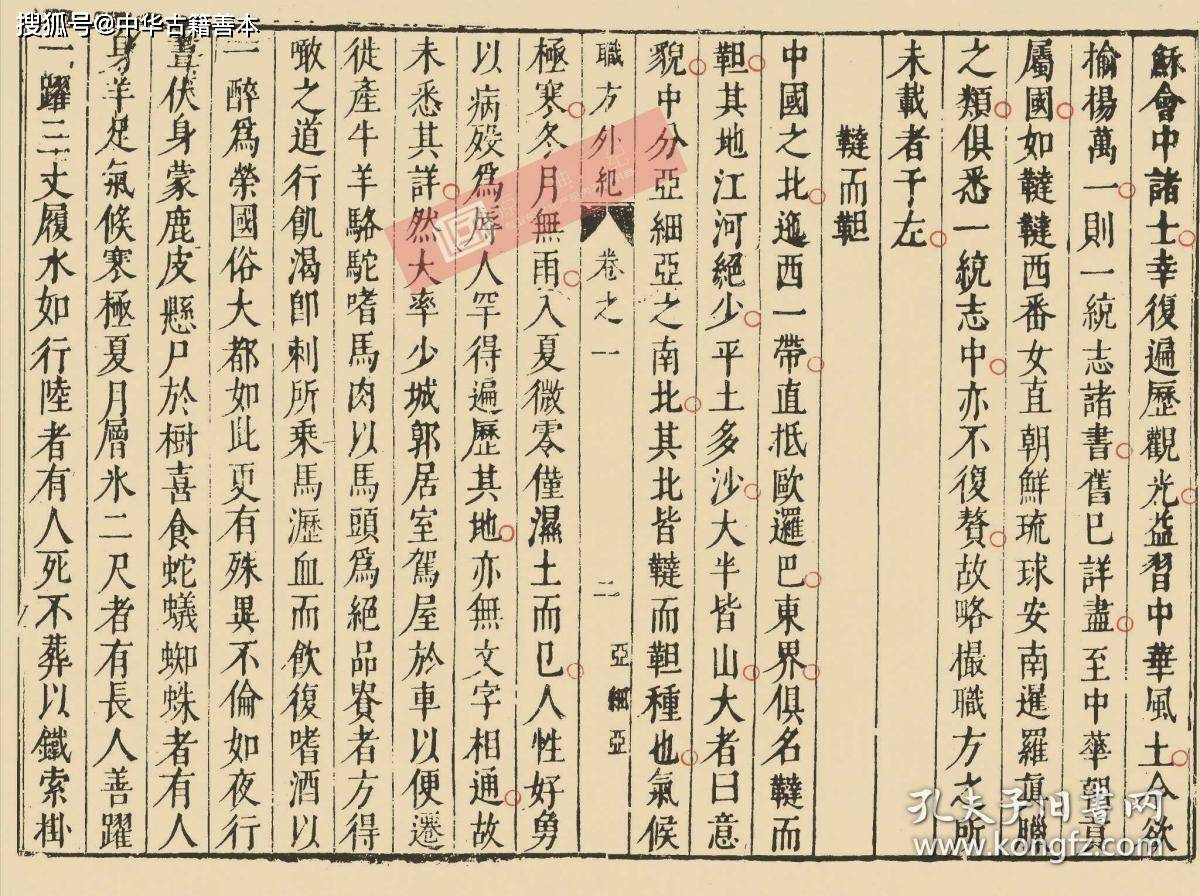 搜狐号@中华古籍善本
穌會中諸士幸復遍歷觀光益習中華風土今欲
揄揚萬一則一統志諸書舊已詳盡至中華朝貢
屬國如韃韃西番女直朝鮮琉球安南暹羅真臘
之類俱悉一統志中亦不復贅故略撮職方之所
未載者于左
韃而靼
中國之北迤西一帶直抵歐邏巴東界俱名韃而
靼其地江河絕少平土多沙大半皆山大者曰意
貌中分亞細亞之南北其北皆韃而靼種也氣候
職方外紀 卷之一 二 亞細亞
極寒冬月無雨入夏微零僅濕土而已人性好勇
以病歿為辱人罕得遍歷其地亦無文字相通故
未悉其詳然大率少城郭居室駕屋於車以便遷
徙產牛羊駱駝嗜馬肉以馬頭為絕品貴者方得
噉之道行飢渴即刺所乘馬瀝血而飲復嗜酒以
一醉為榮國俗大都如此更有殊異不倫如夜行
晝伏身蒙鹿皮懸尸於樹喜食蛇蟻蜘蛛者有人
身羊足氣候寒極夏月層氷二尺者有長人善躍
一躍三丈履水如行陸者有人死不葬以鐵索掛
孔夫子旧书网
www.kongfz.com